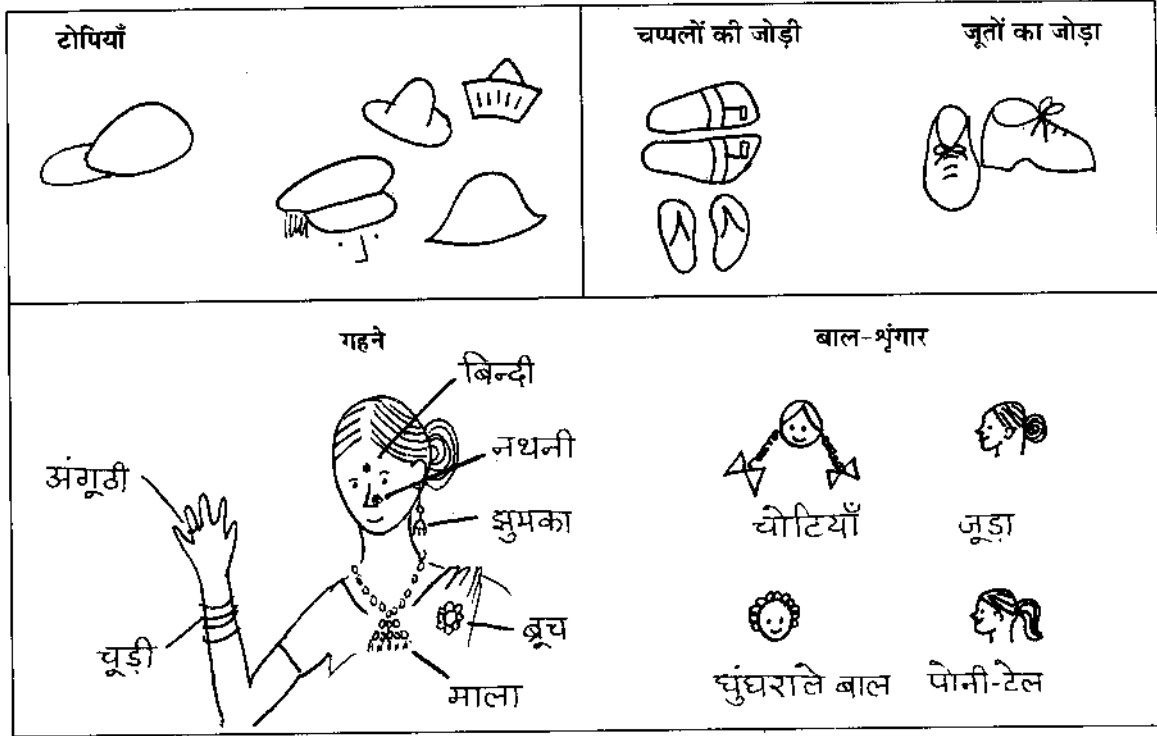 टोपियाँ
चप्पलों की जोड़ी
जूतों का जोड़ा
गहने
बिन्दी
नथनी
अंगूठी
झुमका
चूड़ी
ब्रूच
माला
बाल-शृंगार
चोटियाँ
जूड़ा
घुंघराले बाल
पोनी-टेल